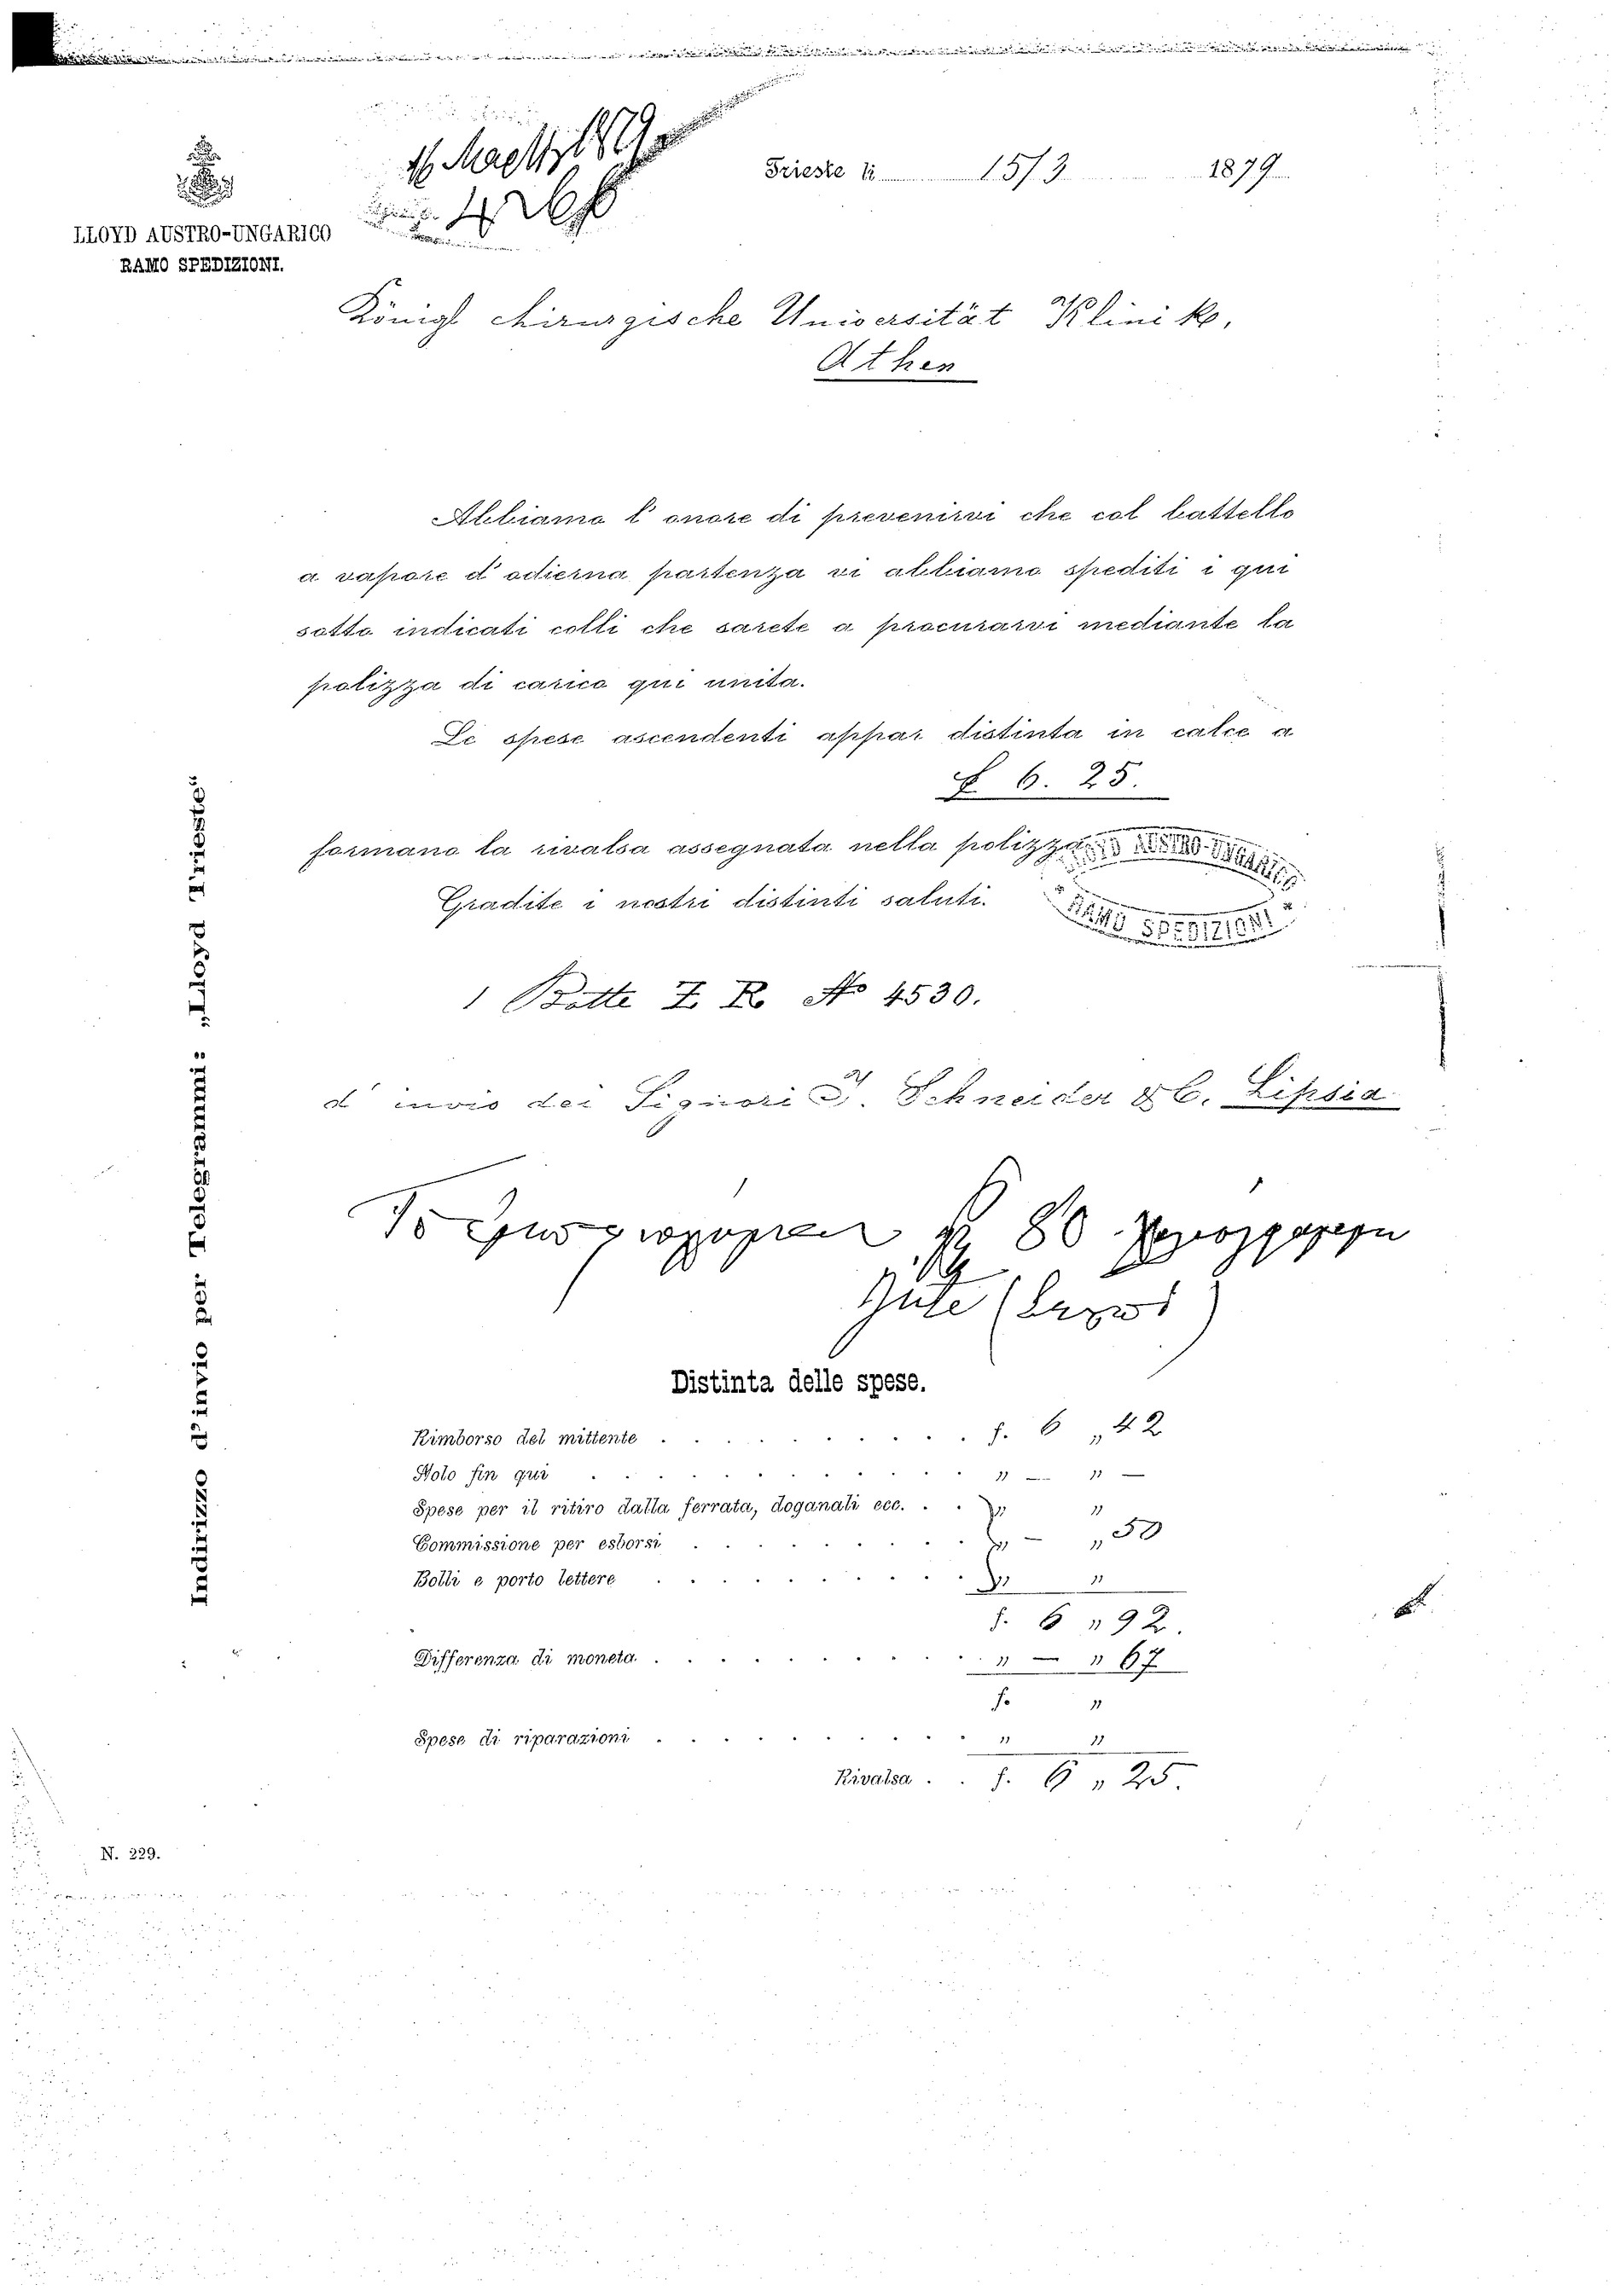 Trieste li 15/3 1879
LLOYD AUSTRO-UNGARICO
RAMO SPEDIZIONI.
Königl chirurgische Universität Klinik,
Athen
Abbiamo l'onore di prevenirvi che col battello
a vapore d'odierna partenza vi abbiamo spediti i qui
sotto indicati colli che sarete a procurarvi mediante la
polizza di carico qui unita.
Le spese ascendenti appar distinta in calce a
f 6. 25.
formano la rivalsa assegnata nella polizza
Gradite i nostri distinti saluti.
AUSTRO-UNGARICO
RAMO SPEDIZIONI
1 Botte Z R No 4530.
d'invio dei Signori J. Schneider & C. Lipsia
Indirizzo d'invio per Telegrammi: „Lloyd Trieste"
80
Distinta delle spese.
Rimborso del mittente . . . . . . . . . . f. 6 „ 42
Nolo fin qui . . . . . . . . . . . . „ — „ —
Spese per il ritiro dalla ferrata, doganali ecc. . . „ „
Commissione per esborsi . . . . . . . . . „ — „ 50
Bolli e porto lettere . . . . . . . . . . „ „
f. 6 „ 92.
Differenza di moneta . . . . . . . . . . . „ — „ 67
f. „
Spese di riparazioni . . . . . . . . . . „ „
Rivalsa . . f. 6 „ 25.
N. 229.